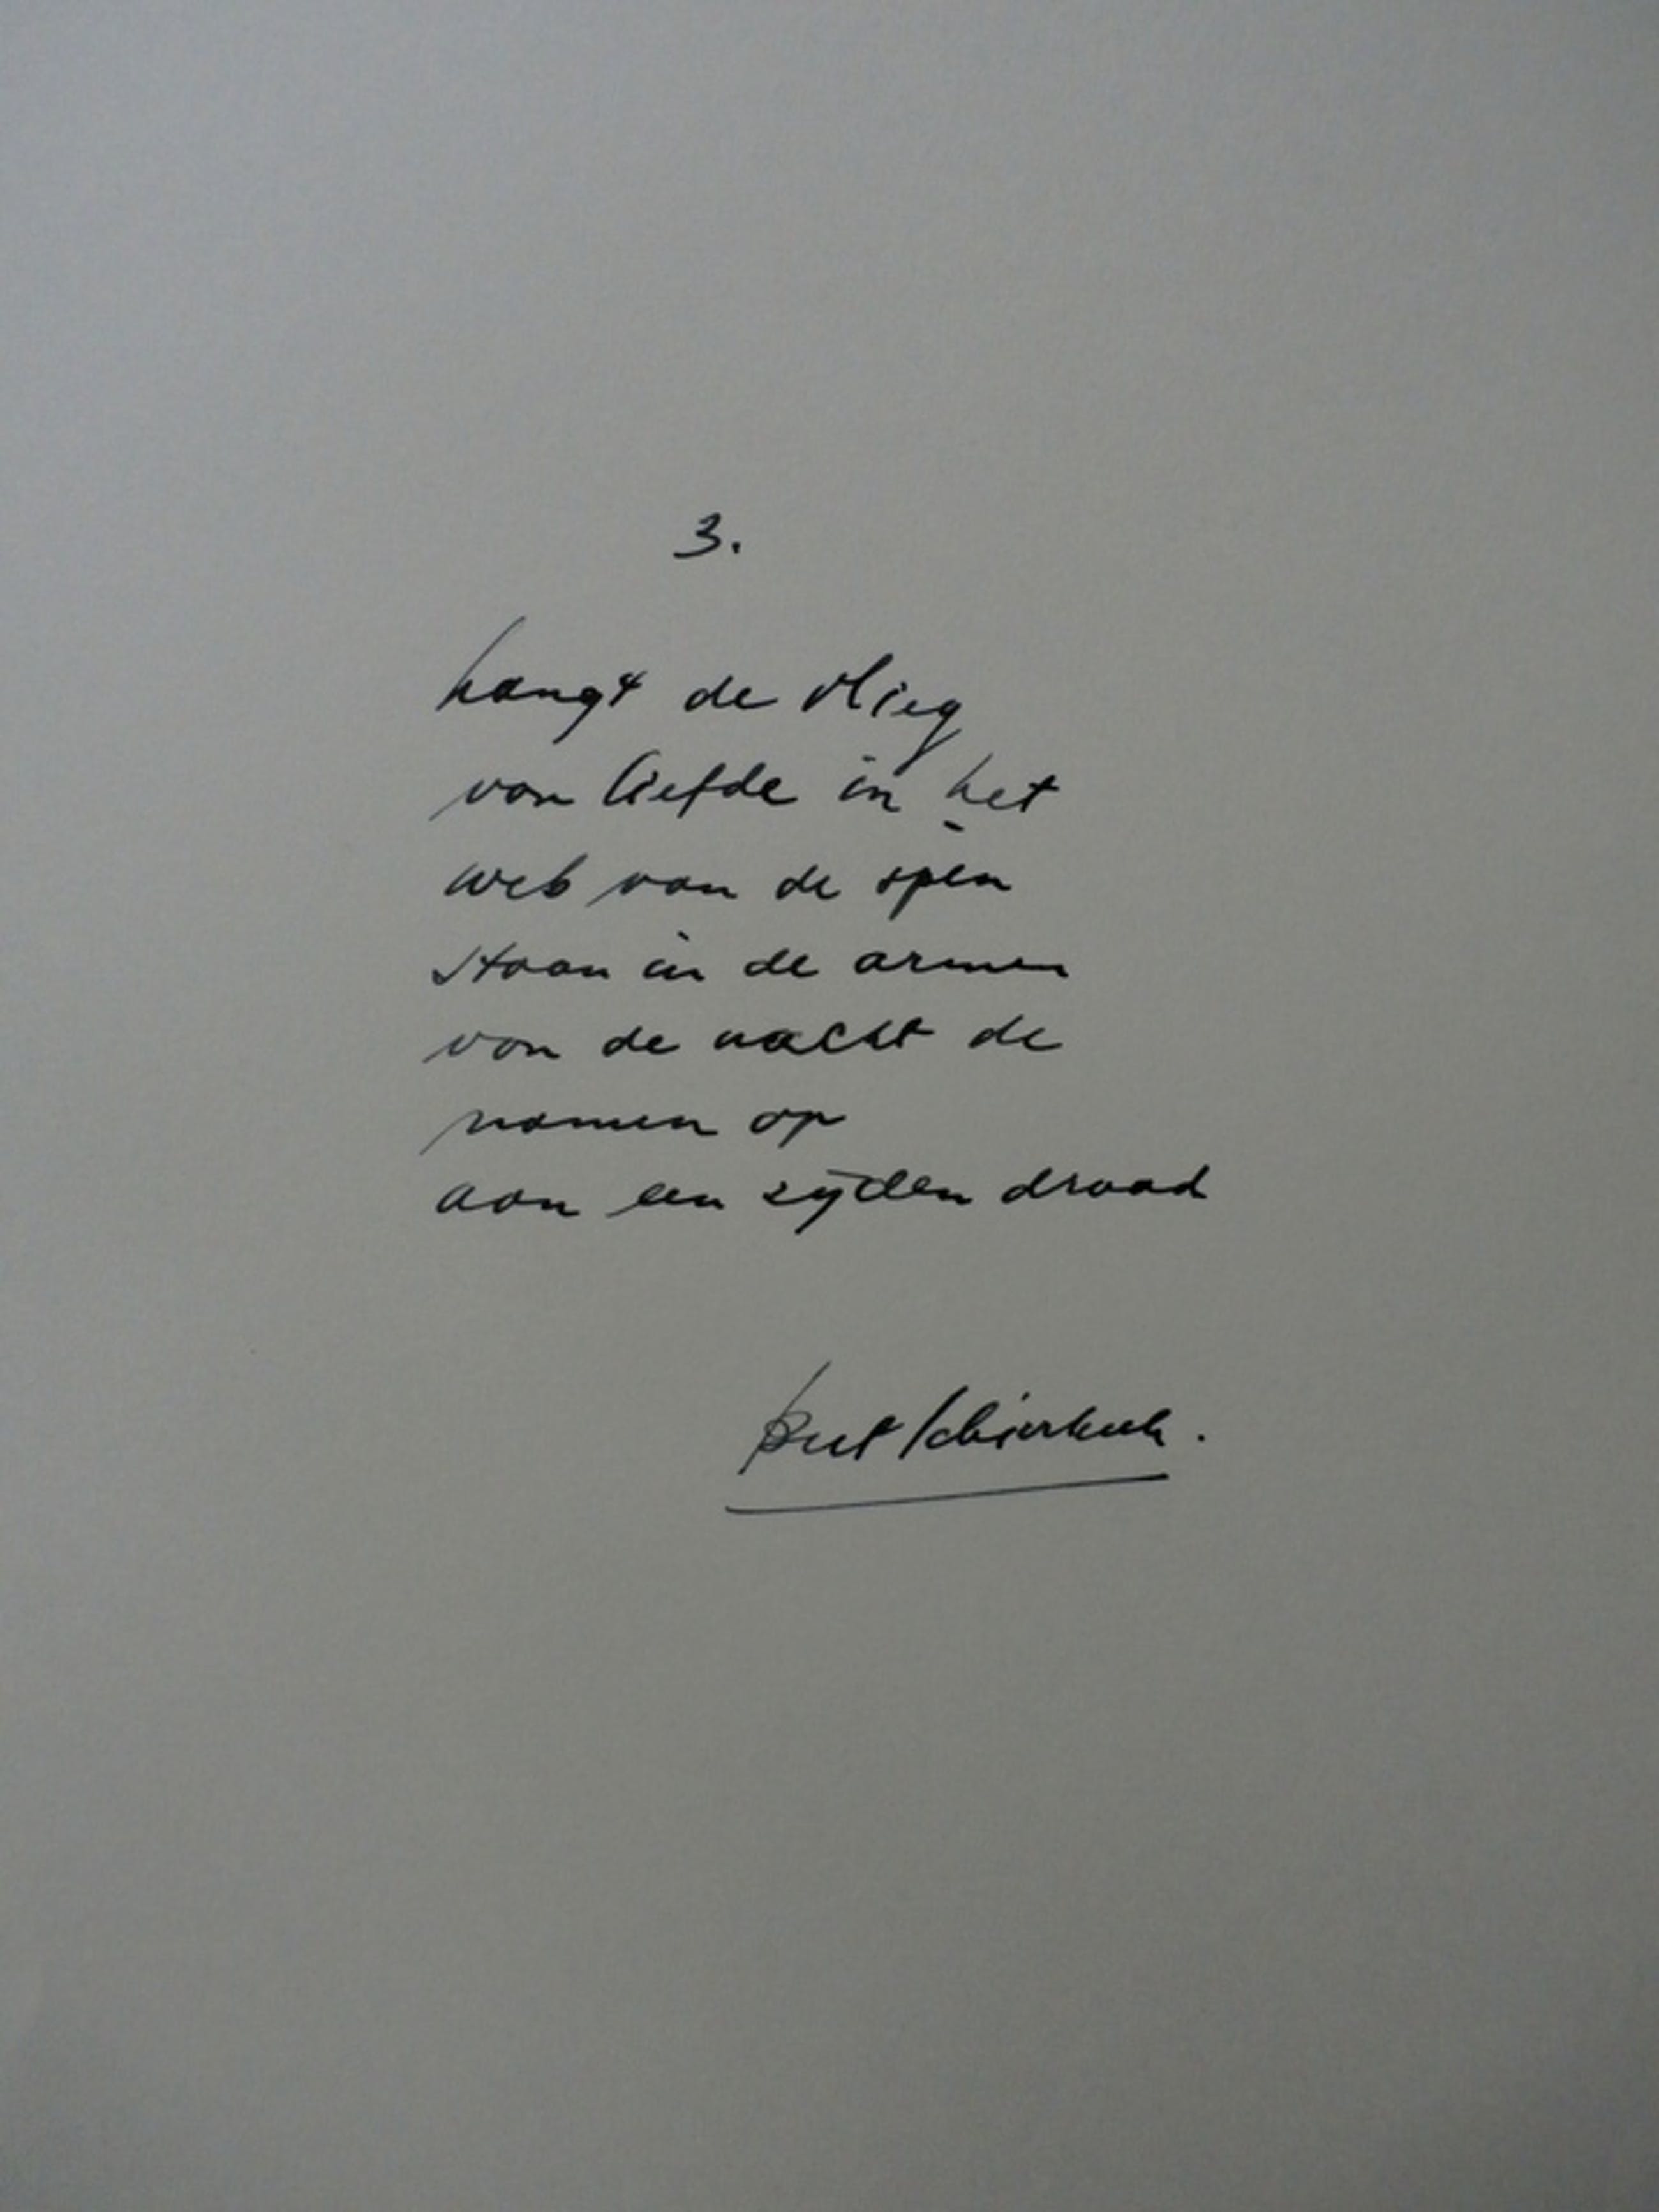 3.
hangt de vlieg
van liefde in het
web van de spin
staan in de armen
van de nacht de
namen op
aan een zijden draad
Bert Schierbeek.